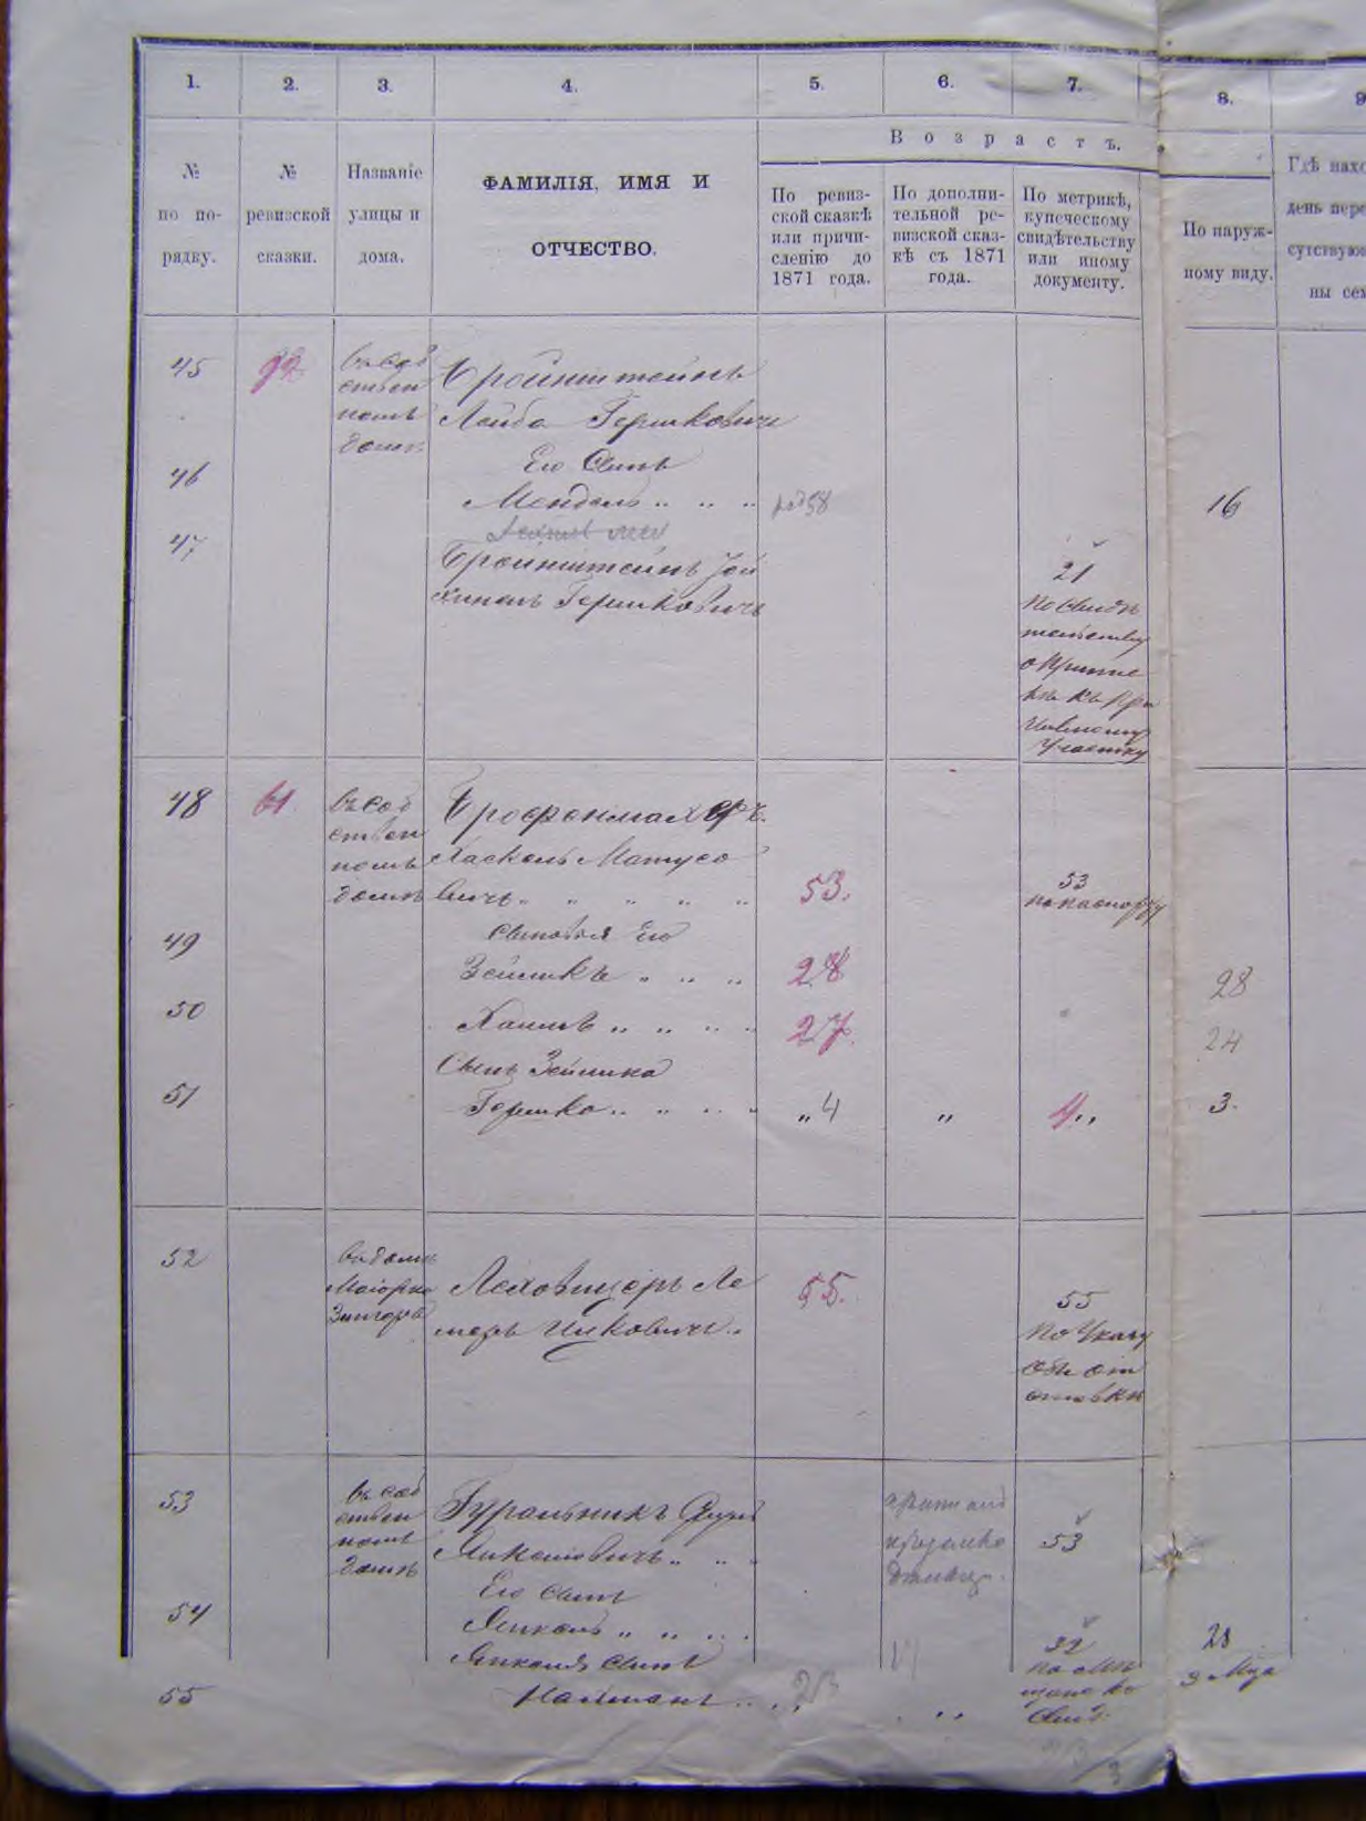 1. 2. 3. 4. 5. 6. 7. 8. 9
№ по по-рядку.
№ ревизской сказки.
Названіе улицы и дома.
ФАМИЛІЯ, ИМЯ И ОТЧЕСТВО.
Возрастъ.
По ревиз-
ской сказкѣ
или причи-
сленію до
1871 года.
По дополни-
тельной ре-
визской сказ-
кѣ съ 1871
года.
По метрикѣ,
купеческому
свидѣтельству
или иному
документу.
По наруж-
ному виду.
Гдѣ нахо
день пере
сутствую
ны сем
45
въ соб
ствен
номъ
домѣ
Бройнштейнъ
Лейба Гершковичъ
46
Его Сынъ
Мендель
16
47
Бройнштейнъ Іой
хинель Гершковичъ
21
по свидѣ
тельству
о припис
кѣ къ при
зывному
участку
48 61
въ соб
ствен
номъ
домѣ
Хаскель Матусо
вичъ 53. 53
по паспорту
49
Сыновья Его
Зейликъ 28 28
50
Хаимъ 27. 24
51
Сынъ Зейлика
Гершко „ 4 „ 4 „ 3.
52
въ домѣ
Леховицеръ Ле
изеръ Ицковичъ 55. 55
По Указу
объ от
ставки
53
въ соб
ствен
номъ
домѣ
Гуральникъ
Янкелевичъ 53
Его Сынъ
54
Янкель 32
по мѣ
щанско
Свид.
Янкеля Сынъ
55
Нахманъ